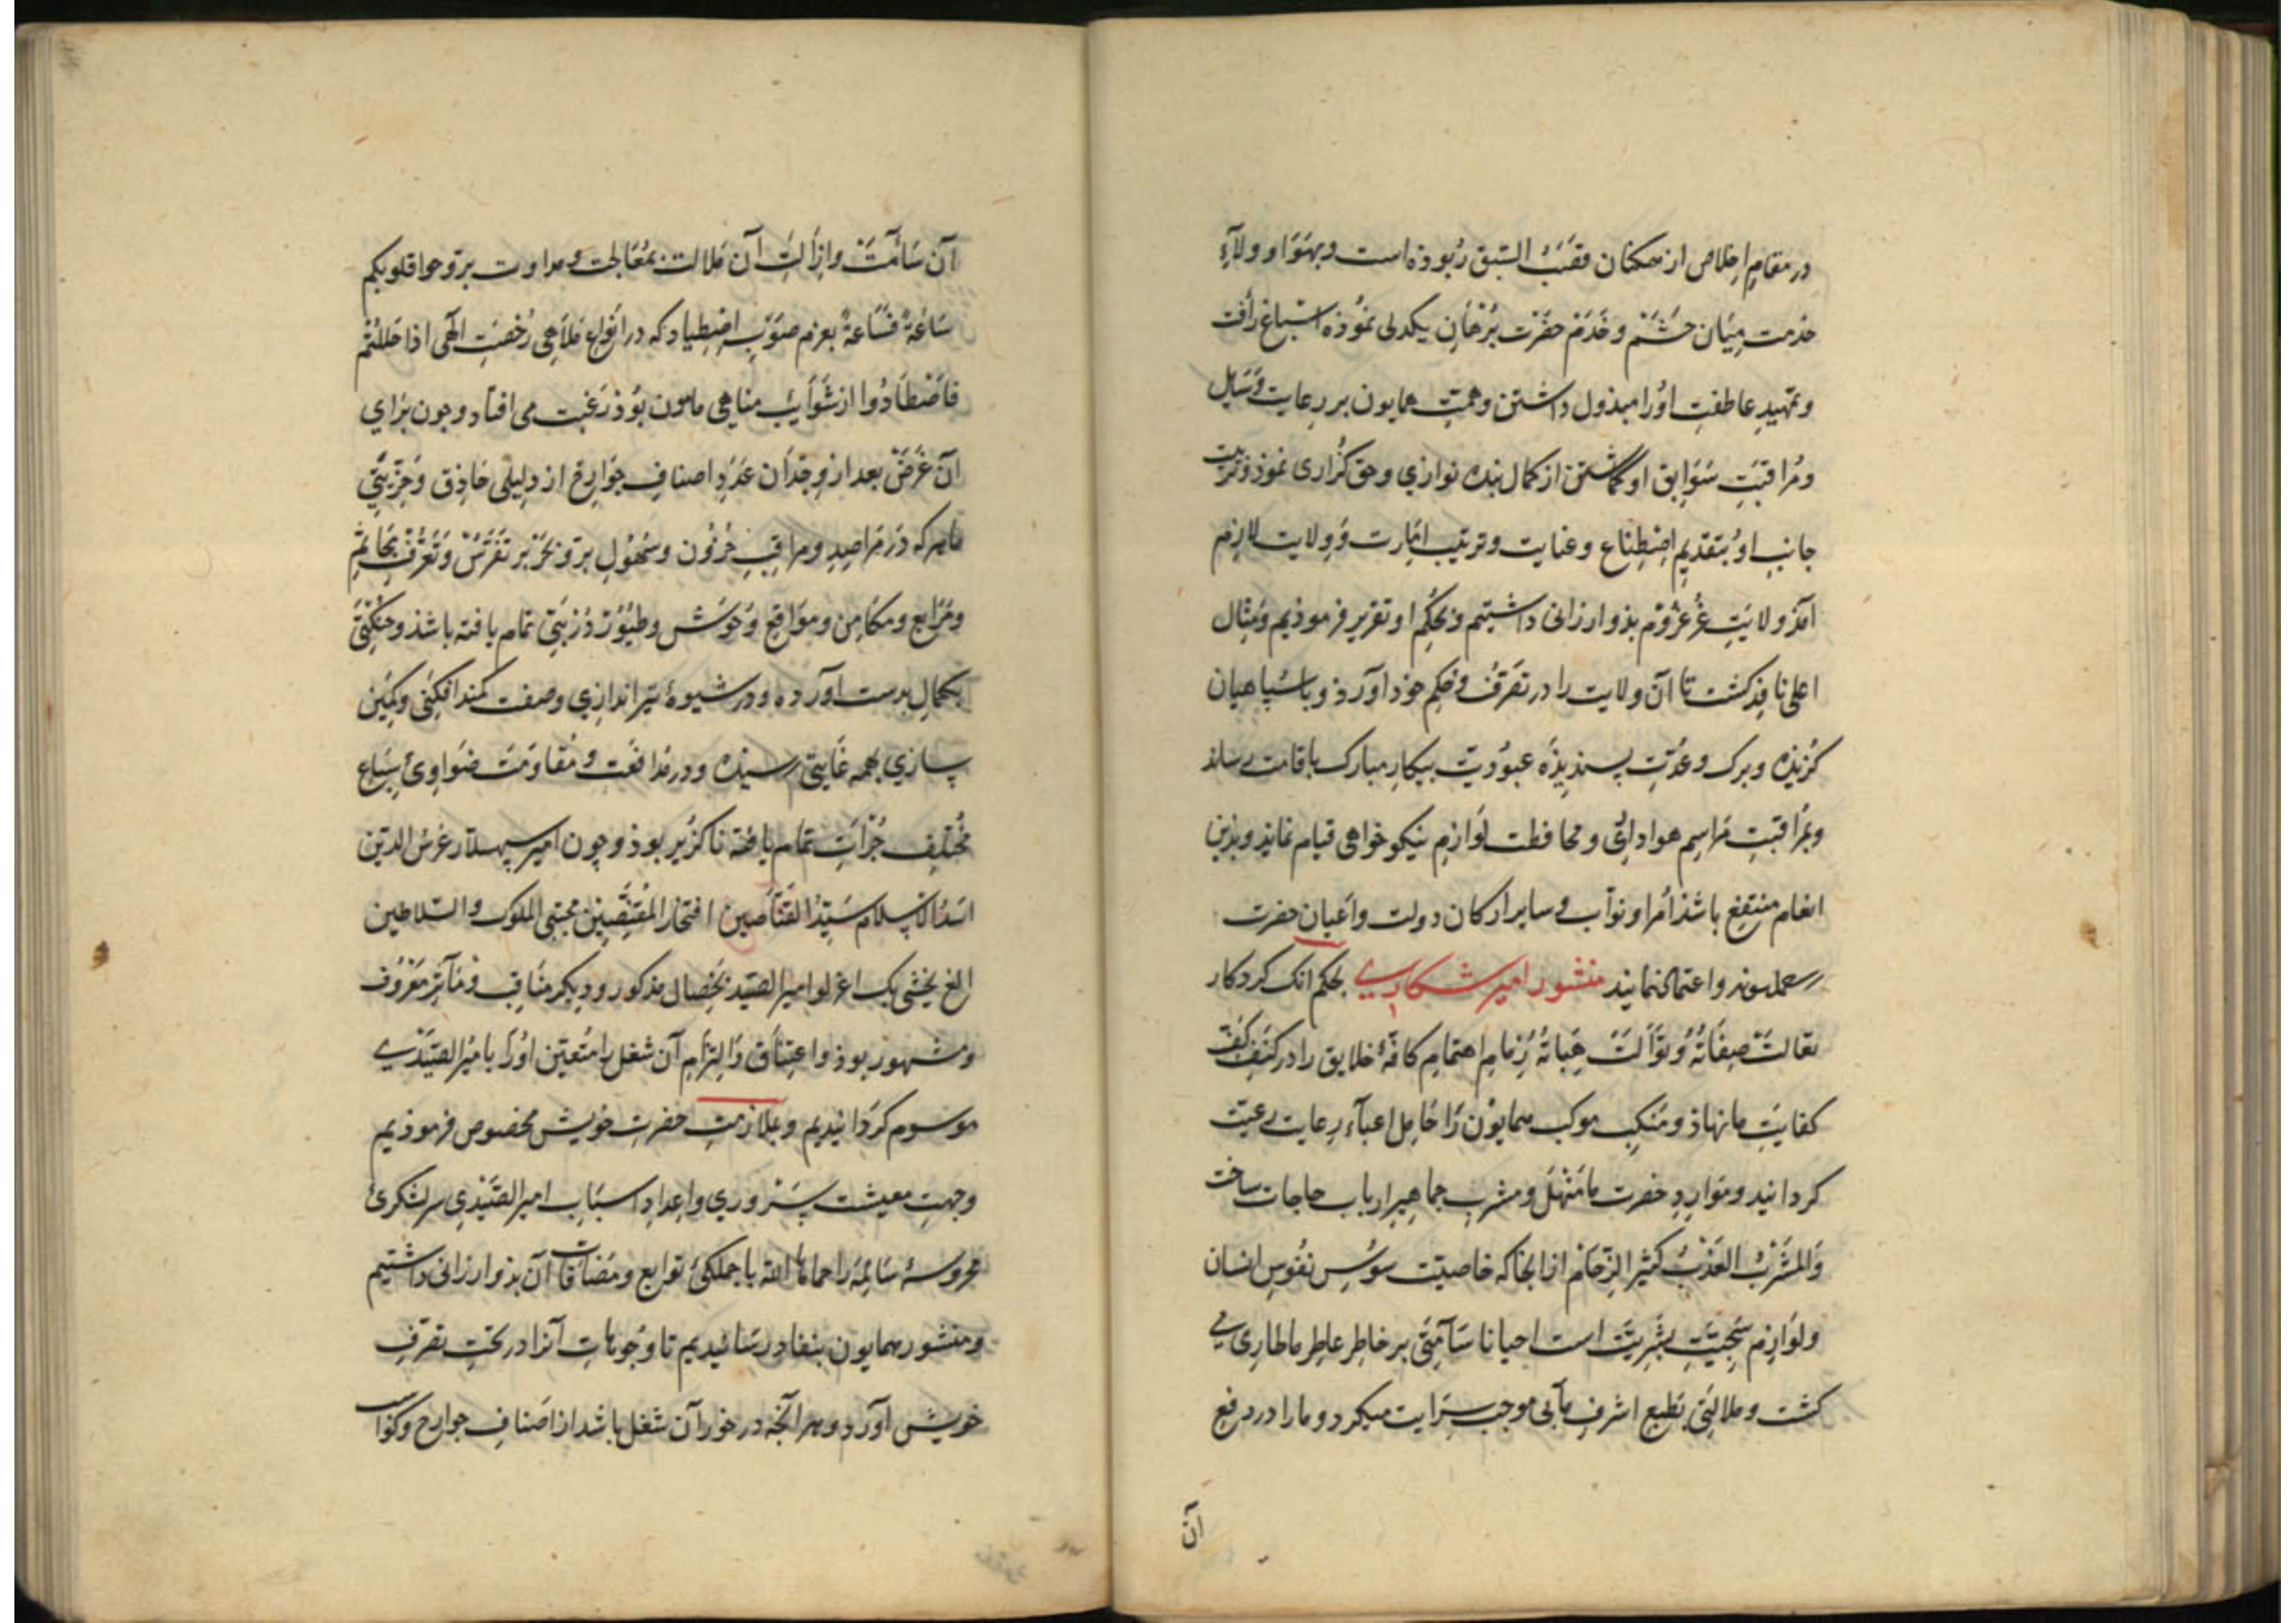 در مقام اخلاص از همکنان قصب السبق ربوذه است و بهوا و ولاء
خدمت میان حشم و خدم حضرت برهان یکدلی نموذه اشباغ رأفت
و تمهید عاطفت اورا مبذول داشتن و همت همایون بر رعایت وسایل
و مراقبت سوابق او گماشتن از کمال بنده نوازی و حق گزاری نموذ و تربیت
جانب او بتقدیم اصطناع و عنایت و ترتیب امارت و ولایت لازم
آمذ ولایت بذو ارزانی داشتیم و بحکم او تقریر فرموذیم و مثال
اعلی نافذ گشت تا آن ولایت را در تصرف و حکم خود آورذ و با سپاهیان
گزیذه و برک و عدت پسندیذه عبودیت بیکار مبارک باقامت رساند
و بمراقبت مراسم هواداری و محافظت لوازم نیکو خواهی قیام نمایذ و بذین
انعام منتفع باشذ امرا و نواب و سایر ارکان دولت و اعیان حضرت
و اعتماد نمایند منشور امیر شکاری بحکم آنک کردکار
تعالت صفاته و توالت هباته زمام اهتمام کافهٔ خلایق را در کنف
کفایت ما نهاذ و منکب موکب همایون را حامل اعباء رعایت رعیت
کردانید و موارد حضرت ما منهل و مشرب جماهیر ارباب حاجات ساخت
والمشرب العذب کثیر الزحام از آنجا که خاصیت سوس نفوس انسان
و لوازم سجیت بشریت است احیانا سآمتی بر خاطر عاطر ما طاری می
کشت و ملالتی بطبع اشرف مآبی موجب سرایت میکرد و ما را در دفع
آن
آن سآمت و ازالت آن ملالت بمعالجت و مداوت بروحوا قلوبکم
ساعة فساعة بعزم صوب اصطیاد که در انواع ملاهی رخصت الهی اذا حللتم
فاصطادوا از شوایب مناهی مامون بوذ رغبت می افتاد و چون برای
آن غرض بعد از وجدان عدد اصناف جوارح از دلیلی حاذق و خریتی
ماهر که در مراصد و مراقب حزون و سهول بر و بحر بر تفرس و تعرف مجاثم
و مرابع و مکامن و مواقع وحوش و طیور دربتی تمام یافته باشذ و حنکتی
بکمال بدست آورده و در شیوهٔ تیراندازی و صفت کمند افکنی و کمین
سازی بهمه غایتی رسیذه و در مدافعت و مقاومت ضواری سباع
مختلف جرأت تمام یافته ناکزیر بوذ و چون امیر سپهسلار غرس الدین
اسد الاسلام سید القناصین افتخار المقتنصین مجتبی الملوک و السلاطین
الغ بخشی بک اغرلو امیر الصید بخصال مذکور و دیکر مناقب و مآثر معروف
و مشهور بوذ و اعتناق و التزام آن شغل را متعین اورا بامیر الصیدی
موسوم کردانیدیم و بملازمت حضرت خویش مخصوص فرموذیم
و جهت معیشت ستروری و اعداد اسباب امیر الصیدی سرلشکری
محروسهٔ سایمه را حماها الله با جملکی توابع و مضافات آن بذو ارزانی داشتیم
و منشور همایون بنفاد رسانیدیم تا وجوهات آنرا در تحت تصرف
خویش آورد و هر آنچه در خورد آن شغل باشد از اصناف جوارح و کواسب